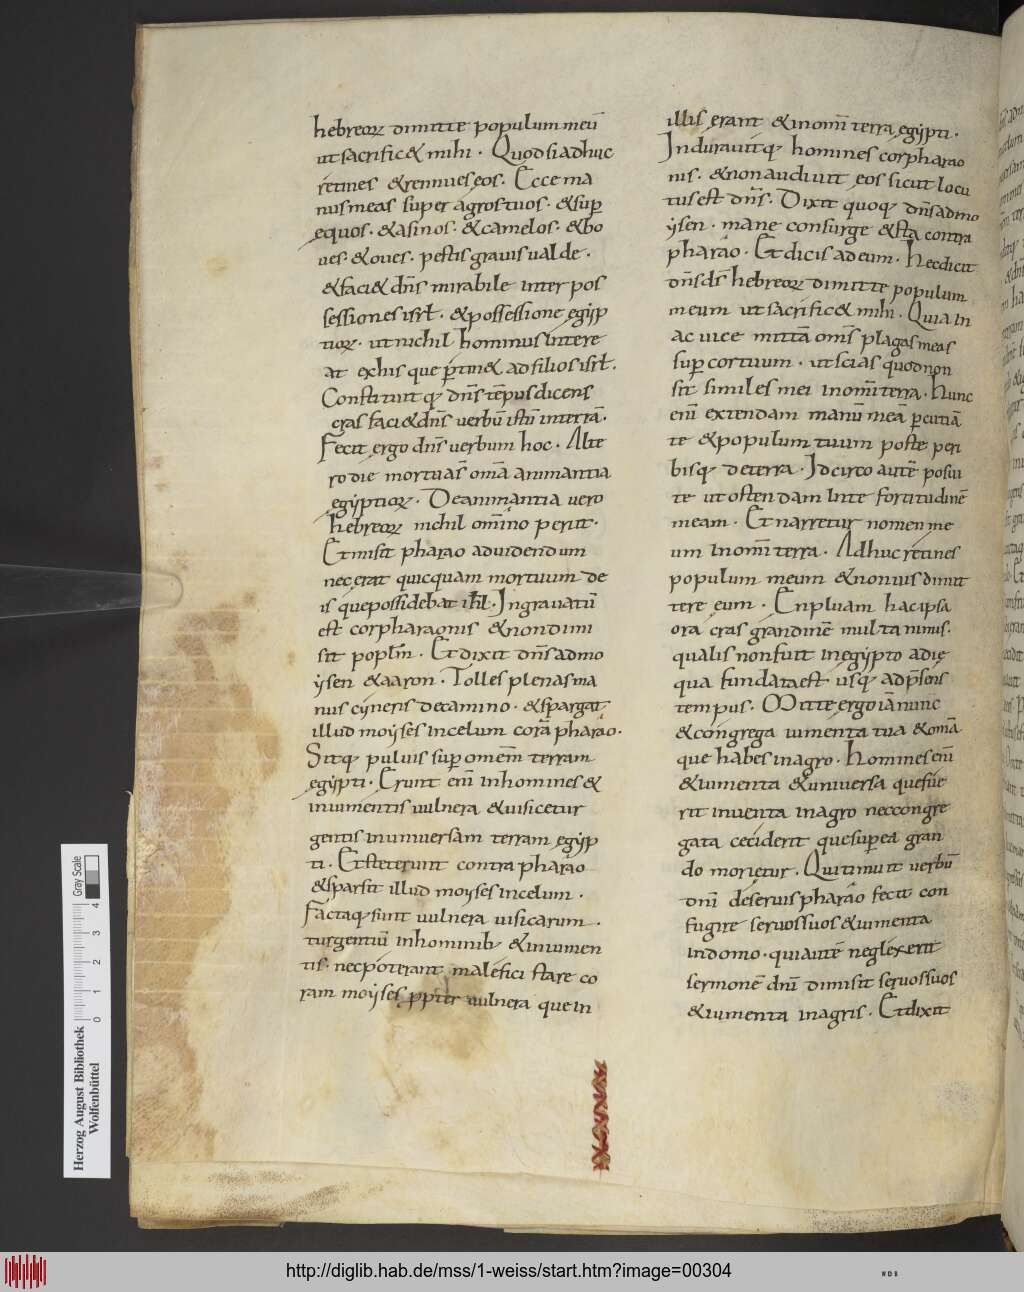 hebreoꝝ dimitte populum meū
ut sacrific& mihi . Quodsi adhuc
retines & rennues eos . Ecce ma
nus mea s̄ super agros tuos . & sup̄
equos . & asinos . & camelos . & bo
ves . & oves . pestis gravis valde .
& faci& dn̄s mirabile inter pos
sessiones isrl̄ . & possessione egyp
tioꝝ . ut nichil hominus intere
at ex his que p̄tin& ad filios isrl̄ .
Constituitq; dn̄s tēpus dicens
cras faci& dn̄s verbū istū interrā .
Fecit ergo dn̄s verbum hoc . Alte
ro die mortuas̄ om̄a animantia
egyptioꝝ . De animantia vero
hebreoꝝ nichil om̄ino periit .
Et misit pharao ad videndum
nec erat quicquam mortuum de
is que possidebat isrl̄ . Ingravatū
est cor pharaonis & non dimi
sit popl̄m . Et dixit dn̄s ad mo
ysen & aaron . Tolles plenas ma
nus cyneris de camino . & spargat
illud moyses in celum corā pharao .
Sitq; pulvis sup̄ omēm terram
egypti . Erunt eni̅ in homines &
in iumentis vulnera & visicetur
gentis in universam terram egyp
ti . Et steterunt contra pharao
& sparsit illud moyses in celum .
Factaq; sunt vulnera visicarum .
turgentiū in hominib; & in iumen
tis . nec poterant malefici stare co
ram moyses ꝓpter vulnera que in
illis erant & in om̄i terra egypti .
Induravitq; homines cor pharao
nis . & non audivit eos sicut locu
tus est dn̄s . Dixit quoq; dn̄s ad mo
ysen . mane consurge & sta contra
pharao . Et dicis ad eum . Hec dicit
dn̄s ds̄ hebreoꝝ dimitte populum
meum ut sacrific& mihi . Quia in
ac vice mittā om̄s plagas meas
sup̄ cor tuum . ut scias quod non
sit similes mei in om̄i terra . Nunc
eni̅ extendam manū meā p̄cutiā
te & populum tuum peste peri
bisq; de terra . Idcirco autē posui
te ut ostendam in te fortitudinē
meam . Et narretur nomen me
um in om̄i terra . Adhuc retines
populum meum & non vis dimit
tere eum . En pluam hac ipsa
ora cras grandinē multa nimis .
qualis non fuit in egypto a die
qua fundata est usq; ad p̄sens
tempus . Mitte ergo iā nunc
& congrega iumenta tua & omā
que habes in agro . Homines eni̅
& iumenta & universa que fue
rit inventa in agro nec congre
gata ceciderit que sup̄ ea gran
do morietur . Qui timuit verbū
dni̅ de servis pharao fecit con
fugire servos suos & iumenta
in domo . qui autē neglexerit
sermonē dni̅ dimisit servos suos
& iumenta in agris . Et dixit
Herzog August Bibliothek
Wolfenbüttel
0 1 2 3 4
Gray Scale
http://diglib.hab.de/mss/1-weiss/start.htm?image=00304